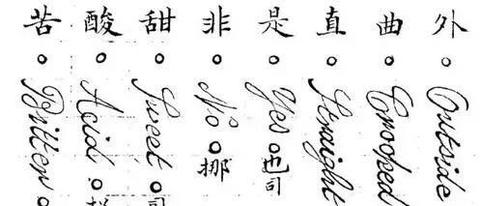 外 Outside
曲 Crooked
直 Straight
是 Yes 也司
非 No 挪
甜 Sweet
酸 Acid
苦 Bitter